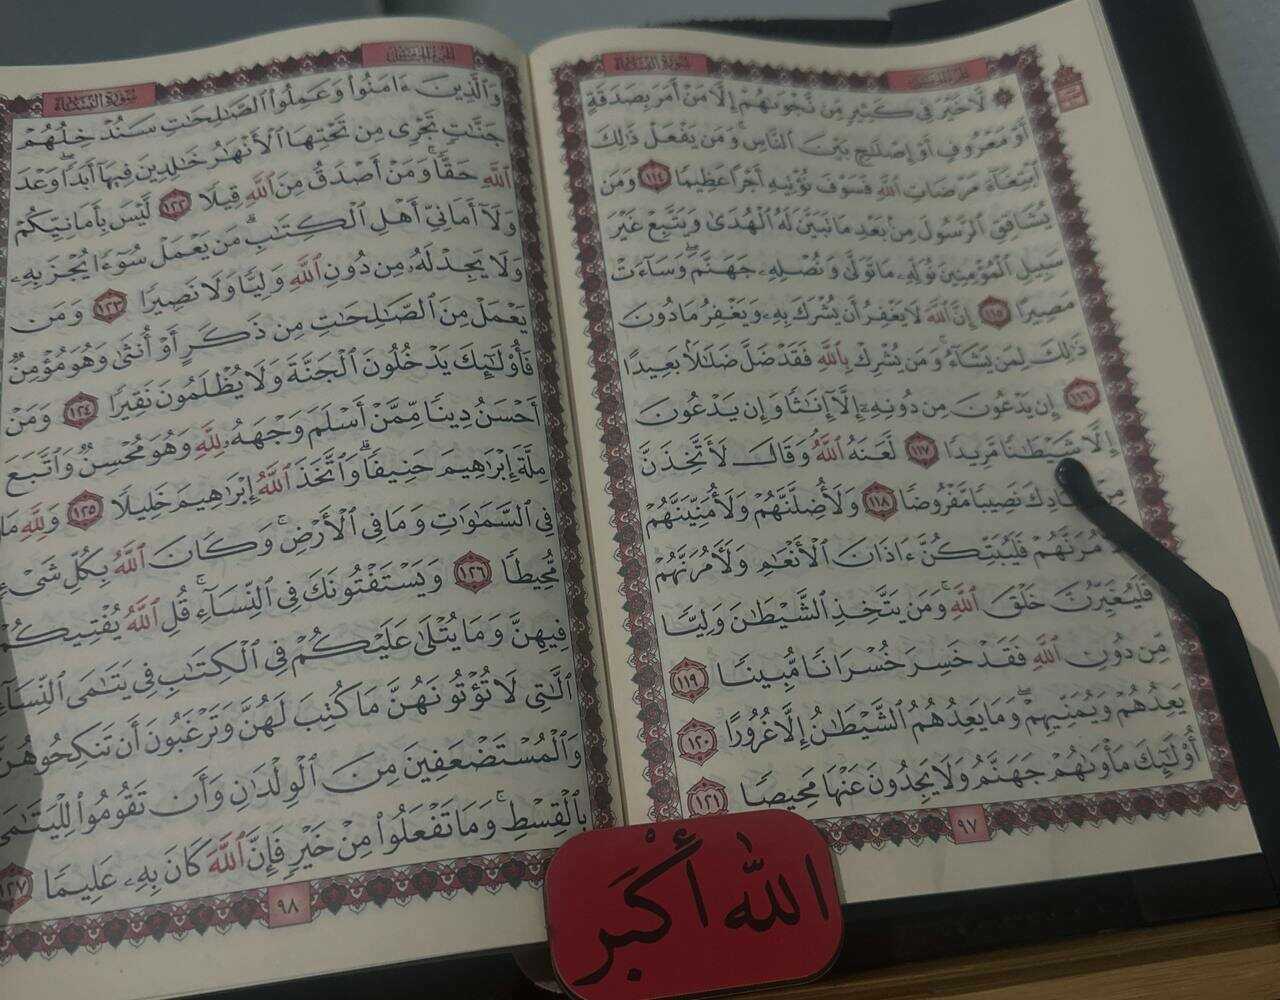 سورة النساء
الجزء الخامس
۞ لَّا خَيْرَ فِي كَثِيرٍ مِّن نَّجْوَىٰهُمْ إِلَّا مَنْ أَمَرَ بِصَدَقَةٍ
أَوْ مَعْرُوفٍ أَوْ إِصْلَٰحٍۭ بَيْنَ ٱلنَّاسِ ۚ وَمَن يَفْعَلْ ذَٰلِكَ
ٱبْتِغَآءَ مَرْضَاتِ ٱللَّهِ فَسَوْفَ نُؤْتِيهِ أَجْرًا عَظِيمًا ١١٤ وَمَن
يُشَاقِقِ ٱلرَّسُولَ مِنۢ بَعْدِ مَا تَبَيَّنَ لَهُ ٱلْهُدَىٰ وَيَتَّبِعْ غَيْرَ
سَبِيلِ ٱلْمُؤْمِنِينَ نُوَلِّهِۦ مَا تَوَلَّىٰ وَنُصْلِهِۦ جَهَنَّمَ ۖ وَسَآءَتْ
مَصِيرًا ١١٥ إِنَّ ٱللَّهَ لَا يَغْفِرُ أَن يُشْرَكَ بِهِۦ وَيَغْفِرُ مَا دُونَ
ذَٰلِكَ لِمَن يَشَآءُ ۚ وَمَن يُشْرِكْ بِٱللَّهِ فَقَدْ ضَلَّ ضَلَٰلًۢا بَعِيدًا
١١٦ إِن يَدْعُونَ مِن دُونِهِۦٓ إِلَّآ إِنَٰثًا وَإِن يَدْعُونَ
إِلَّا شَيْطَٰنًا مَّرِيدًا ١١٧ لَّعَنَهُ ٱللَّهُ ۘ وَقَالَ لَأَتَّخِذَنَّ
مِنْ عِبَادِكَ نَصِيبًا مَّفْرُوضًا ١١٨ وَلَأُضِلَّنَّهُمْ وَلَأُمَنِّيَنَّهُمْ
وَلَءَامُرَنَّهُمْ فَلَيُبَتِّكُنَّ ءَاذَانَ ٱلْأَنْعَٰمِ وَلَءَامُرَنَّهُمْ
فَلَيُغَيِّرُنَّ خَلْقَ ٱللَّهِ ۚ وَمَن يَتَّخِذِ ٱلشَّيْطَٰنَ وَلِيًّا
مِّن دُونِ ٱللَّهِ فَقَدْ خَسِرَ خُسْرَانًا مُّبِينًا ١١٩
يَعِدُهُمْ وَيُمَنِّيهِمْ ۖ وَمَا يَعِدُهُمُ ٱلشَّيْطَٰنُ إِلَّا غُرُورًا ١٢٠
أُو۟لَٰٓئِكَ مَأْوَىٰهُمْ جَهَنَّمُ وَلَا يَجِدُونَ عَنْهَا مَحِيصًا ١٢١
٩٧
الجزء الخامس
سورة النساء
وَٱلَّذِينَ ءَامَنُوا۟ وَعَمِلُوا۟ ٱلصَّٰلِحَٰتِ سَنُدْخِلُهُمْ
جَنَّٰتٍ تَجْرِى مِن تَحْتِهَا ٱلْأَنْهَٰرُ خَٰلِدِينَ فِيهَآ أَبَدًا ۖ وَعْدَ
ٱللَّهِ حَقًّا ۚ وَمَنْ أَصْدَقُ مِنَ ٱللَّهِ قِيلًا ١٢٢ لَّيْسَ بِأَمَانِيِّكُمْ
وَلَآ أَمَانِىِّ أَهْلِ ٱلْكِتَٰبِ ۗ مَن يَعْمَلْ سُوٓءًا يُجْزَ بِهِۦ
وَلَا يَجِدْ لَهُۥ مِن دُونِ ٱللَّهِ وَلِيًّا وَلَا نَصِيرًا ١٢٣ وَمَن
يَعْمَلْ مِنَ ٱلصَّٰلِحَٰتِ مِن ذَكَرٍ أَوْ أُنثَىٰ وَهُوَ مُؤْمِنٌ
فَأُو۟لَٰٓئِكَ يَدْخُلُونَ ٱلْجَنَّةَ وَلَا يُظْلَمُونَ نَقِيرًا ١٢٤ وَمَنْ
أَحْسَنُ دِينًا مِّمَّنْ أَسْلَمَ وَجْهَهُۥ لِلَّهِ وَهُوَ مُحْسِنٌ وَٱتَّبَعَ
مِلَّةَ إِبْرَٰهِيمَ حَنِيفًا ۗ وَٱتَّخَذَ ٱللَّهُ إِبْرَٰهِيمَ خَلِيلًا ١٢٥ وَلِلَّهِ مَا
فِى ٱلسَّمَٰوَٰتِ وَمَا فِى ٱلْأَرْضِ ۚ وَكَانَ ٱللَّهُ بِكُلِّ شَىْءٍ
مُّحِيطًا ١٢٦ وَيَسْتَفْتُونَكَ فِى ٱلنِّسَآءِ ۖ قُلِ ٱللَّهُ يُفْتِيكُمْ
فِيهِنَّ وَمَا يُتْلَىٰ عَلَيْكُمْ فِى ٱلْكِتَٰبِ فِى يَتَٰمَى ٱلنِّسَآءِ
ٱلَّٰتِى لَا تُؤْتُونَهُنَّ مَا كُتِبَ لَهُنَّ وَتَرْغَبُونَ أَن تَنكِحُوهُنَّ
وَٱلْمُسْتَضْعَفِينَ مِنَ ٱلْوِلْدَٰنِ وَأَن تَقُومُوا۟ لِلْيَتَٰمَىٰ
بِٱلْقِسْطِ ۚ وَمَا تَفْعَلُوا۟ مِنْ خَيْرٍ فَإِنَّ ٱللَّهَ كَانَ بِهِۦ عَلِيمًا ١٢٧
٩٨
اللّٰه أَكْبَر